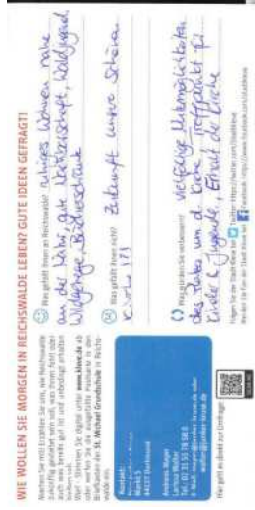 WIE WOLLEN SIE MORGEN IN REICHSWALDE LEBEN? GUTE IDEEN GEFRAGT!
Machen Sie mit! Erzählen Sie uns, wie Reichswalde
zukünftig gestaltet sein soll, was Ihnen fehlt oder
auch was bereits gut ist und unbedingt erhalten
bleiben soll.
Wo? - Stimmen Sie digital unter www.kleve.de ab
oder werfen Sie die ausgefüllte Postkarte in den
Briefkasten der St. Michael Grundschule in Reichs-
walde ein.
Kontakt:
Markt 5
44137 Dortmund
Andreas Mayer
Larissa Wolter
Tel.: 02 31 55 78 58 0
Hier geht es direkt zur Umfrage:
Was gefällt Ihnen an Reichswalde? ruhiges Wohnen nahe
an der Natur, gute Nachbarschaft, Waldjugend
Was gefällt Ihnen nicht? Zukunft unsere schönen
Kirche
Was würden Sie verbessern? vielfältige
des Platzes um d. Kirche, Treffpunkt für
Kinder & Jugendl., Erhalt der Kirche
Folgen Sie der Stadt Kleve bei Twitter https://twitter.com/stadtkleve
Werden Sie Fan der Stadt Kleve bei Facebook https://www.facebook.com/stadtkleve